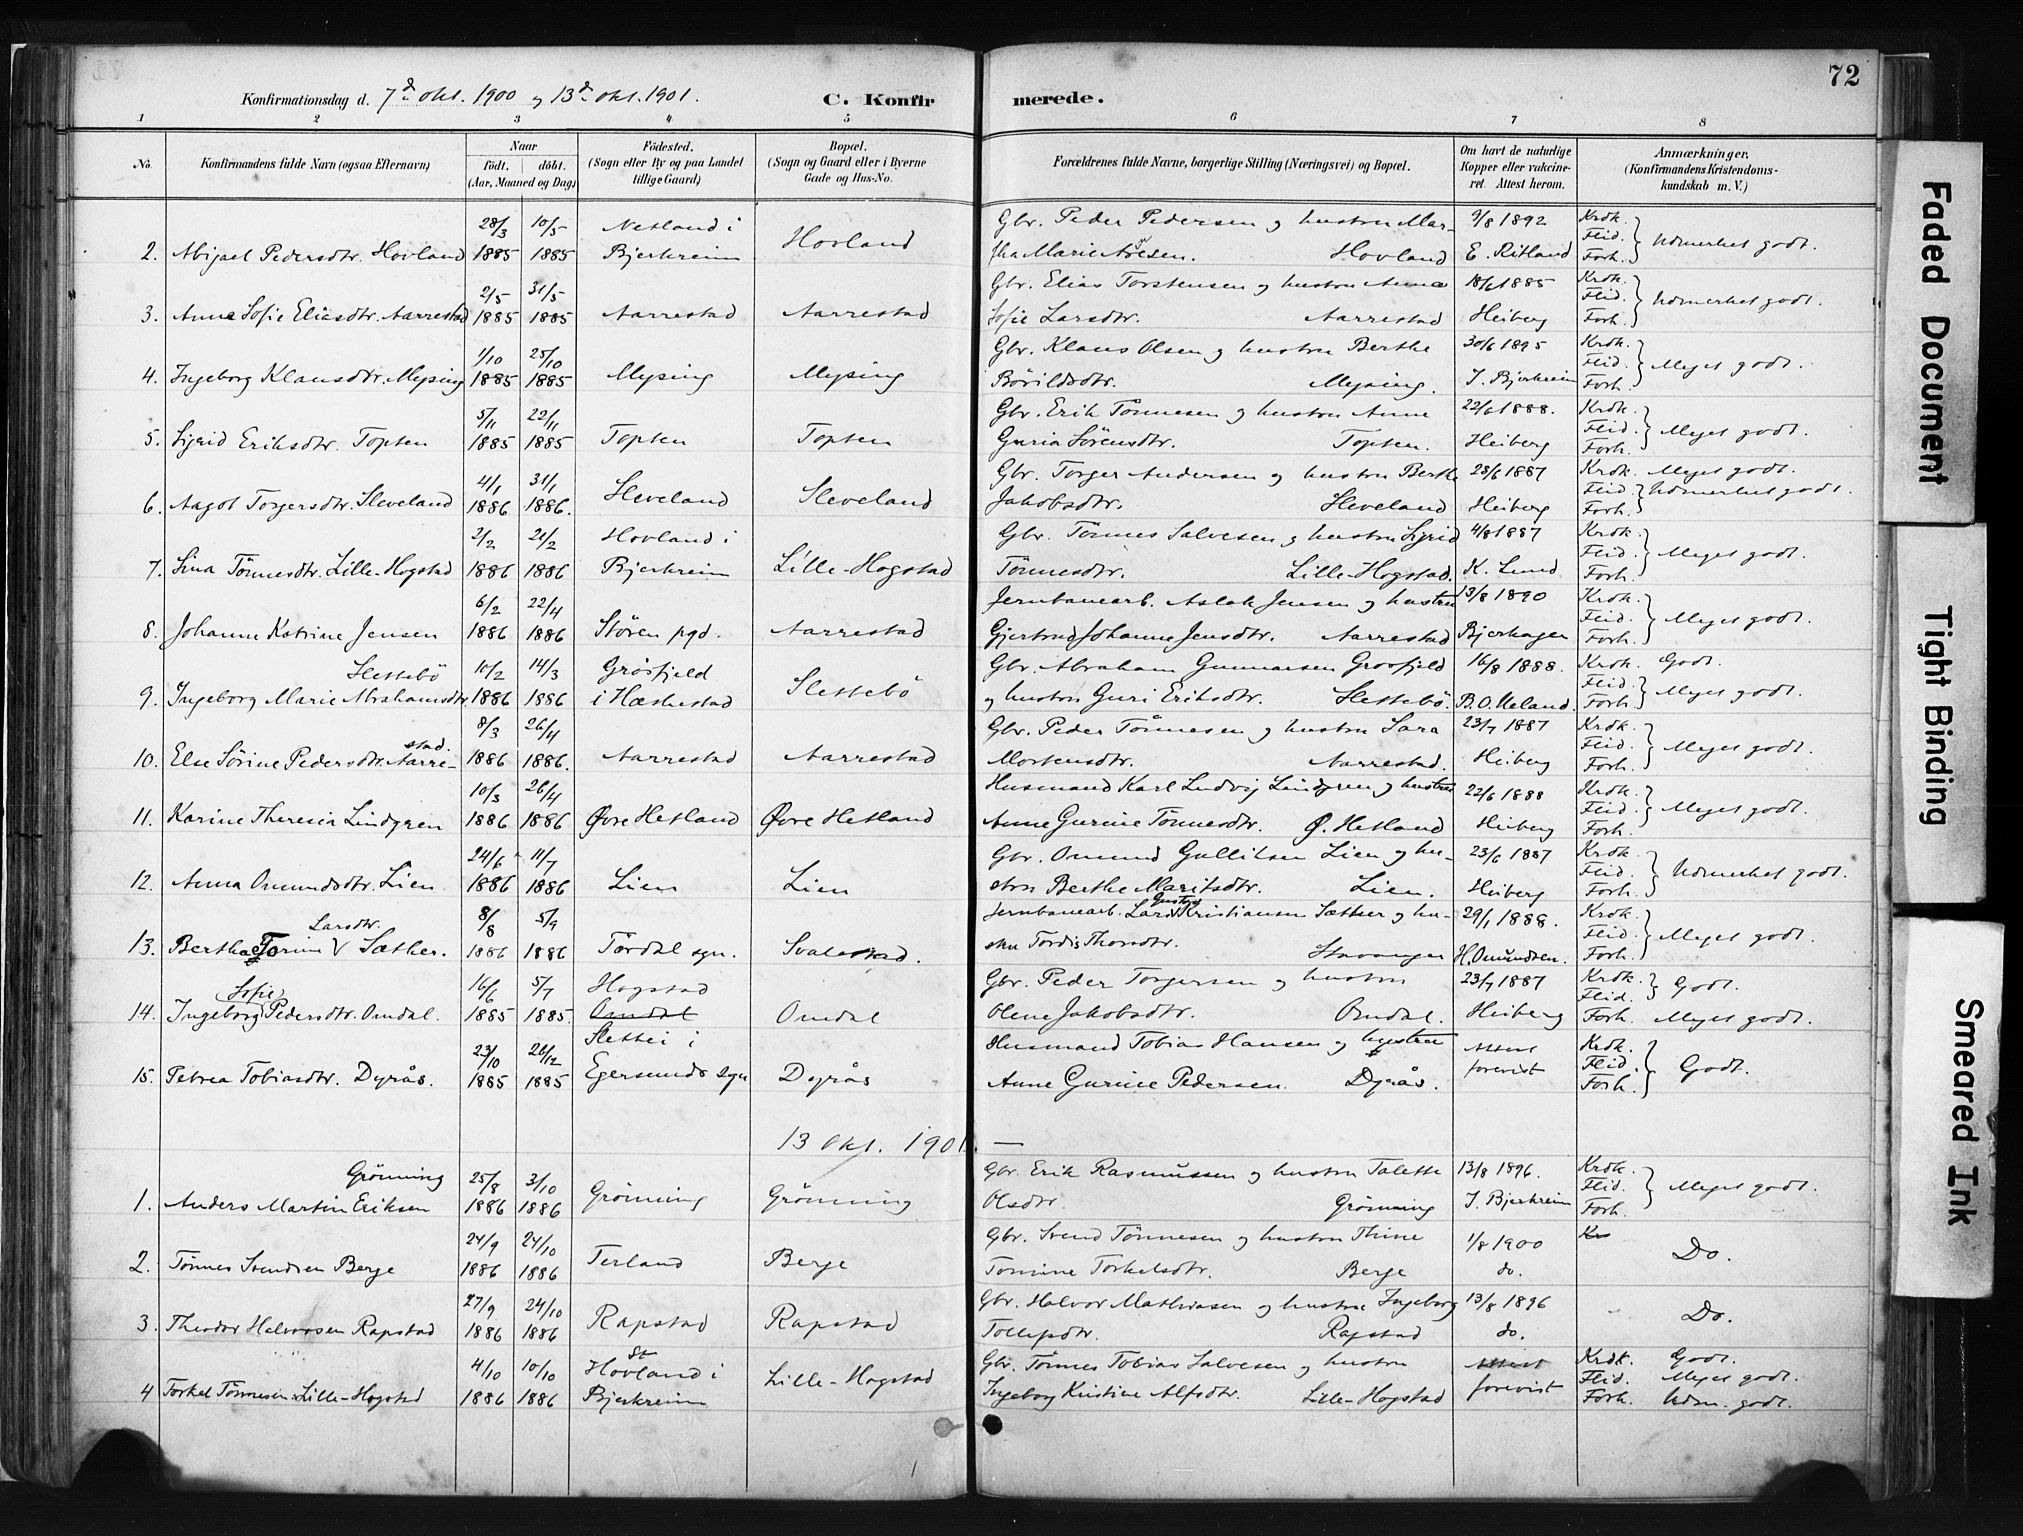 72
Konfirmationsdag d. 7de okt. 1900 og 13de okt. 1901.
C. Konfirmerede.
1 2 3 4 5 6 7 8
No.
Konfirmandens fulde Navn (ogsaa Efternavn)
Naar
født. døbt.
(Aar, Maaned og Dag)
Fødested.
(Sogn eller By og paa Landet
tillige Gaard)
Bopæl.
(Sogn og Gaard eller i Byerne
Gade og Hus-No.
Forældrenes fulde Navne, borgerlige Stilling (Næringsvei) og Bopæl.
Om havt de naturlige
Kopper eller vakcine-
ret. Attest herom.
Anmærkninger.
(Konfirmandens Kristendoms-
kundskab m. V.)
28/3 10/5 Netland i Gbr. Peder Pedersen og hustru Mar- 9/8 1892 Krdk.
2. Abigael Pedersdtr. Hovland 1885 1885 Bjerkreim Hovland tha Marie Hovland E. Ritland Flid. Forh. Udmerket godt.
2/5 31/5 Gbr. Elias Torstensen og hustru Anna 18/6 1885 Krdk.
3. Anna Sofie Eliasdtr. Aarrestad 1885 1885 Aarrestad Aarrestad Sofie Larsdtr. Aarrestad Heiberg Flid. Forh. Udmerket godt.
1/10 25/10 Gbr. Klaus Olsen og hustru Berthe 30/6 1895 Krdk.
4. Ingeborg Klausdtr. Mysing 1885 1885 Mysing Mysing Børildsdtr. Mysing. I. Bjerkreim Flid. Forh. Meget godt.
5/11 22/11 Gbr. Erik Tønnesen og hustru Anne 22/6 1888. Krdk.
5. Sigrid Eriksdtr. Topten 1885 1885 Topten Topten Guria Sørensdtr. Topten. Heiberg Flid. Forh. Meget godt.
4/1 31/1 Gbr. Torger Andersen og hustru Berthe 23/6 1887 Krdk. Meget godt.
6. Aagot Torgersdtr. Sleveland 1886 1886. Sleveland Sleveland Jakobsdtr. Sleveland Heiberg Flid. Forh. Udmerket godt.
2/2 21/2 Hovland i Gbr. Tønnes Salvesen og hustru Sigrid 4/8 1887 Krdk.
7. Sina Tønnesdtr. Lille-Hogstad 1886 1886 Bjerkreim Lille-Hogstad Tønnesdtr. Lille-Hogstad. K. Lund Flid. Forh. Meget godt.
6/2 22/4 Jernbanearb. Aslak Jensen og hustru 13/8 1890 Krdk.
8. Johanne Katrine Jensen 1886 1886 Støren pgd. Aarrestad Gjertrud Johanne Jensdtr. Aarrestad Bjerkagen Flid. Forh. Meget godt.
Slettebø 10/2 14/3 Grøsfjeld Gbr. Abraham Gunnarsen Grosfjeld 16/8 1888. Krdk. Godt.
9. Ingeborg Marie Abrahamsdtr. 1886 1886 i Hæskestad Slettebø og hustru Guri Eriksdtr. Slettebø. B. O. Ueland. Flid. Forh. Meget godt.
8/3 26/4 Gbr. Peder Tønnesen og hustru Sara 23/7 1887 Krdk.
10. Else Sørine Pedersdtr. Aarre-stad. 1886 1886. Aarrestad Aarrestad Mortensdtr. Aarrestad. Heiberg Flid. Forh. Meget godt.
10/3 26/4 Husmand Karl Ludvig Lindgren og hustru 22/6 1888 Krdk.
11. Karine Theresia Lindgren 1886 1886 Øvre Hetland Øvre Hetland Anne Gurine Tønnesdtr. Ø. Hetland Heiberg Flid. Forh. Meget godt.
24/6 11/7 Gbr. Omund Gulliksen Lien og hu- 23/6 1887 Krdk.
12. Anna Omundsdtr. Lien 1886 1886 Lien Lien stru Berthe Maritsdtr. Lien. Heiberg Flid. Forh. Udmerket godt.
Larsdtr. 8/8 5/9 Jernbanearb. Lars Gustav Kristiansen Sæther og hu- 29/1 1888. Krdk.
13. Bertha Torine Sæther. 1886 1886 Tørdal sgn. Svalestad. stru Tordis Thorsdtr. Stavanger H. Omundsen. Flid. Forh. Meget godt.
Sofie 16/6 5/7 Hogstad Gbr. Peder Torgersen og hustru 23/7 1887 Krdk. Flid. Godt.
14. Ingeborg Pedersdtr. Omdal. 1885 1885. Omdal Omdal Olene Jakobsdtr. Omdal. Heiberg Forh. Meget godt.
23/10 26/12 Slettei i Husmand Tobias Hansen og hustru Attest Krdk.
15. Petrea Tobiasdtr. Dyrås. 1885 1885 Egersunds sgn Dyrås Anne Gurine Pedersen. Dyrås. forevist Flid. Forh. Godt.
13 Okt. 1901. —
Grønning 25/8 3/10 Gbr. Erik Rasmussen og hustru Talette 13/8 1896. Krdk.
1. Anders Martin Eriksen 1886 1886 Grønning Grønning Olsdtr. Grønning I. Bjerkreim Flid. Forh. Meget godt.
24/9 24/10 Gbr. Svend Tønnesen og hustru Thine 1/8 1900 Kr
2. Tønnes Svendsen Berge 1886 1886 Terland Berge Tomine Torkelsdtr. Berge do. Do.
27/9 24/10 Gbr. Halvor Mathiasen og hustru Ingeborg 13/8 1896
3. Theodor Halvorsen Rapstad 1886 1886 Rapstad Rapstad Tollefsdtr. Rapstad do. Do.
4/10 10/10 St Hovland i Gbr. Tønnes Tobias Salvesen og hustru Attest Krdk. Godt.
4 Torkel Tønnesen Lille-Hogstad 1886 1886 Bjerkreim Lille-Hogstad Ingeborg Kristine Alfsdtr. Lille-Hogstad forevist Flid. Meget godt.
Forh. Udm. godt.
Faded Document
Tight Binding
Smeared Ink